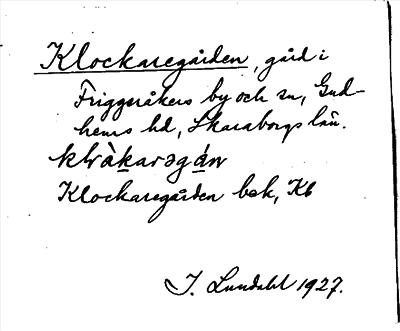 Klockaregården, gård i
Friggeråkers by och sn, Gud-
hems hd, Skaraborgs län.
klɷ̀karəgán
Klockaregården bok, Kb
I. Lundahl 1927.